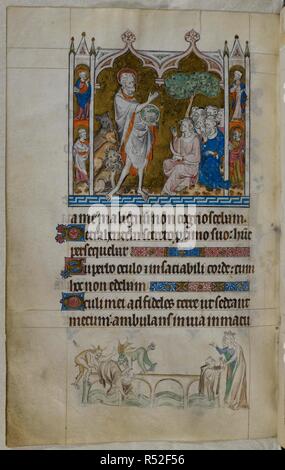 a me malignum non cognoscebam.
Detrahentem secreto proximo suo: hunc
persequebar
Superbo oculo et insaciabili corde: cum
hoc non edebam
Oculi mei ad fideles terre ut sedeant
mecum: ambulans in via inmacu
alamy
R52F56